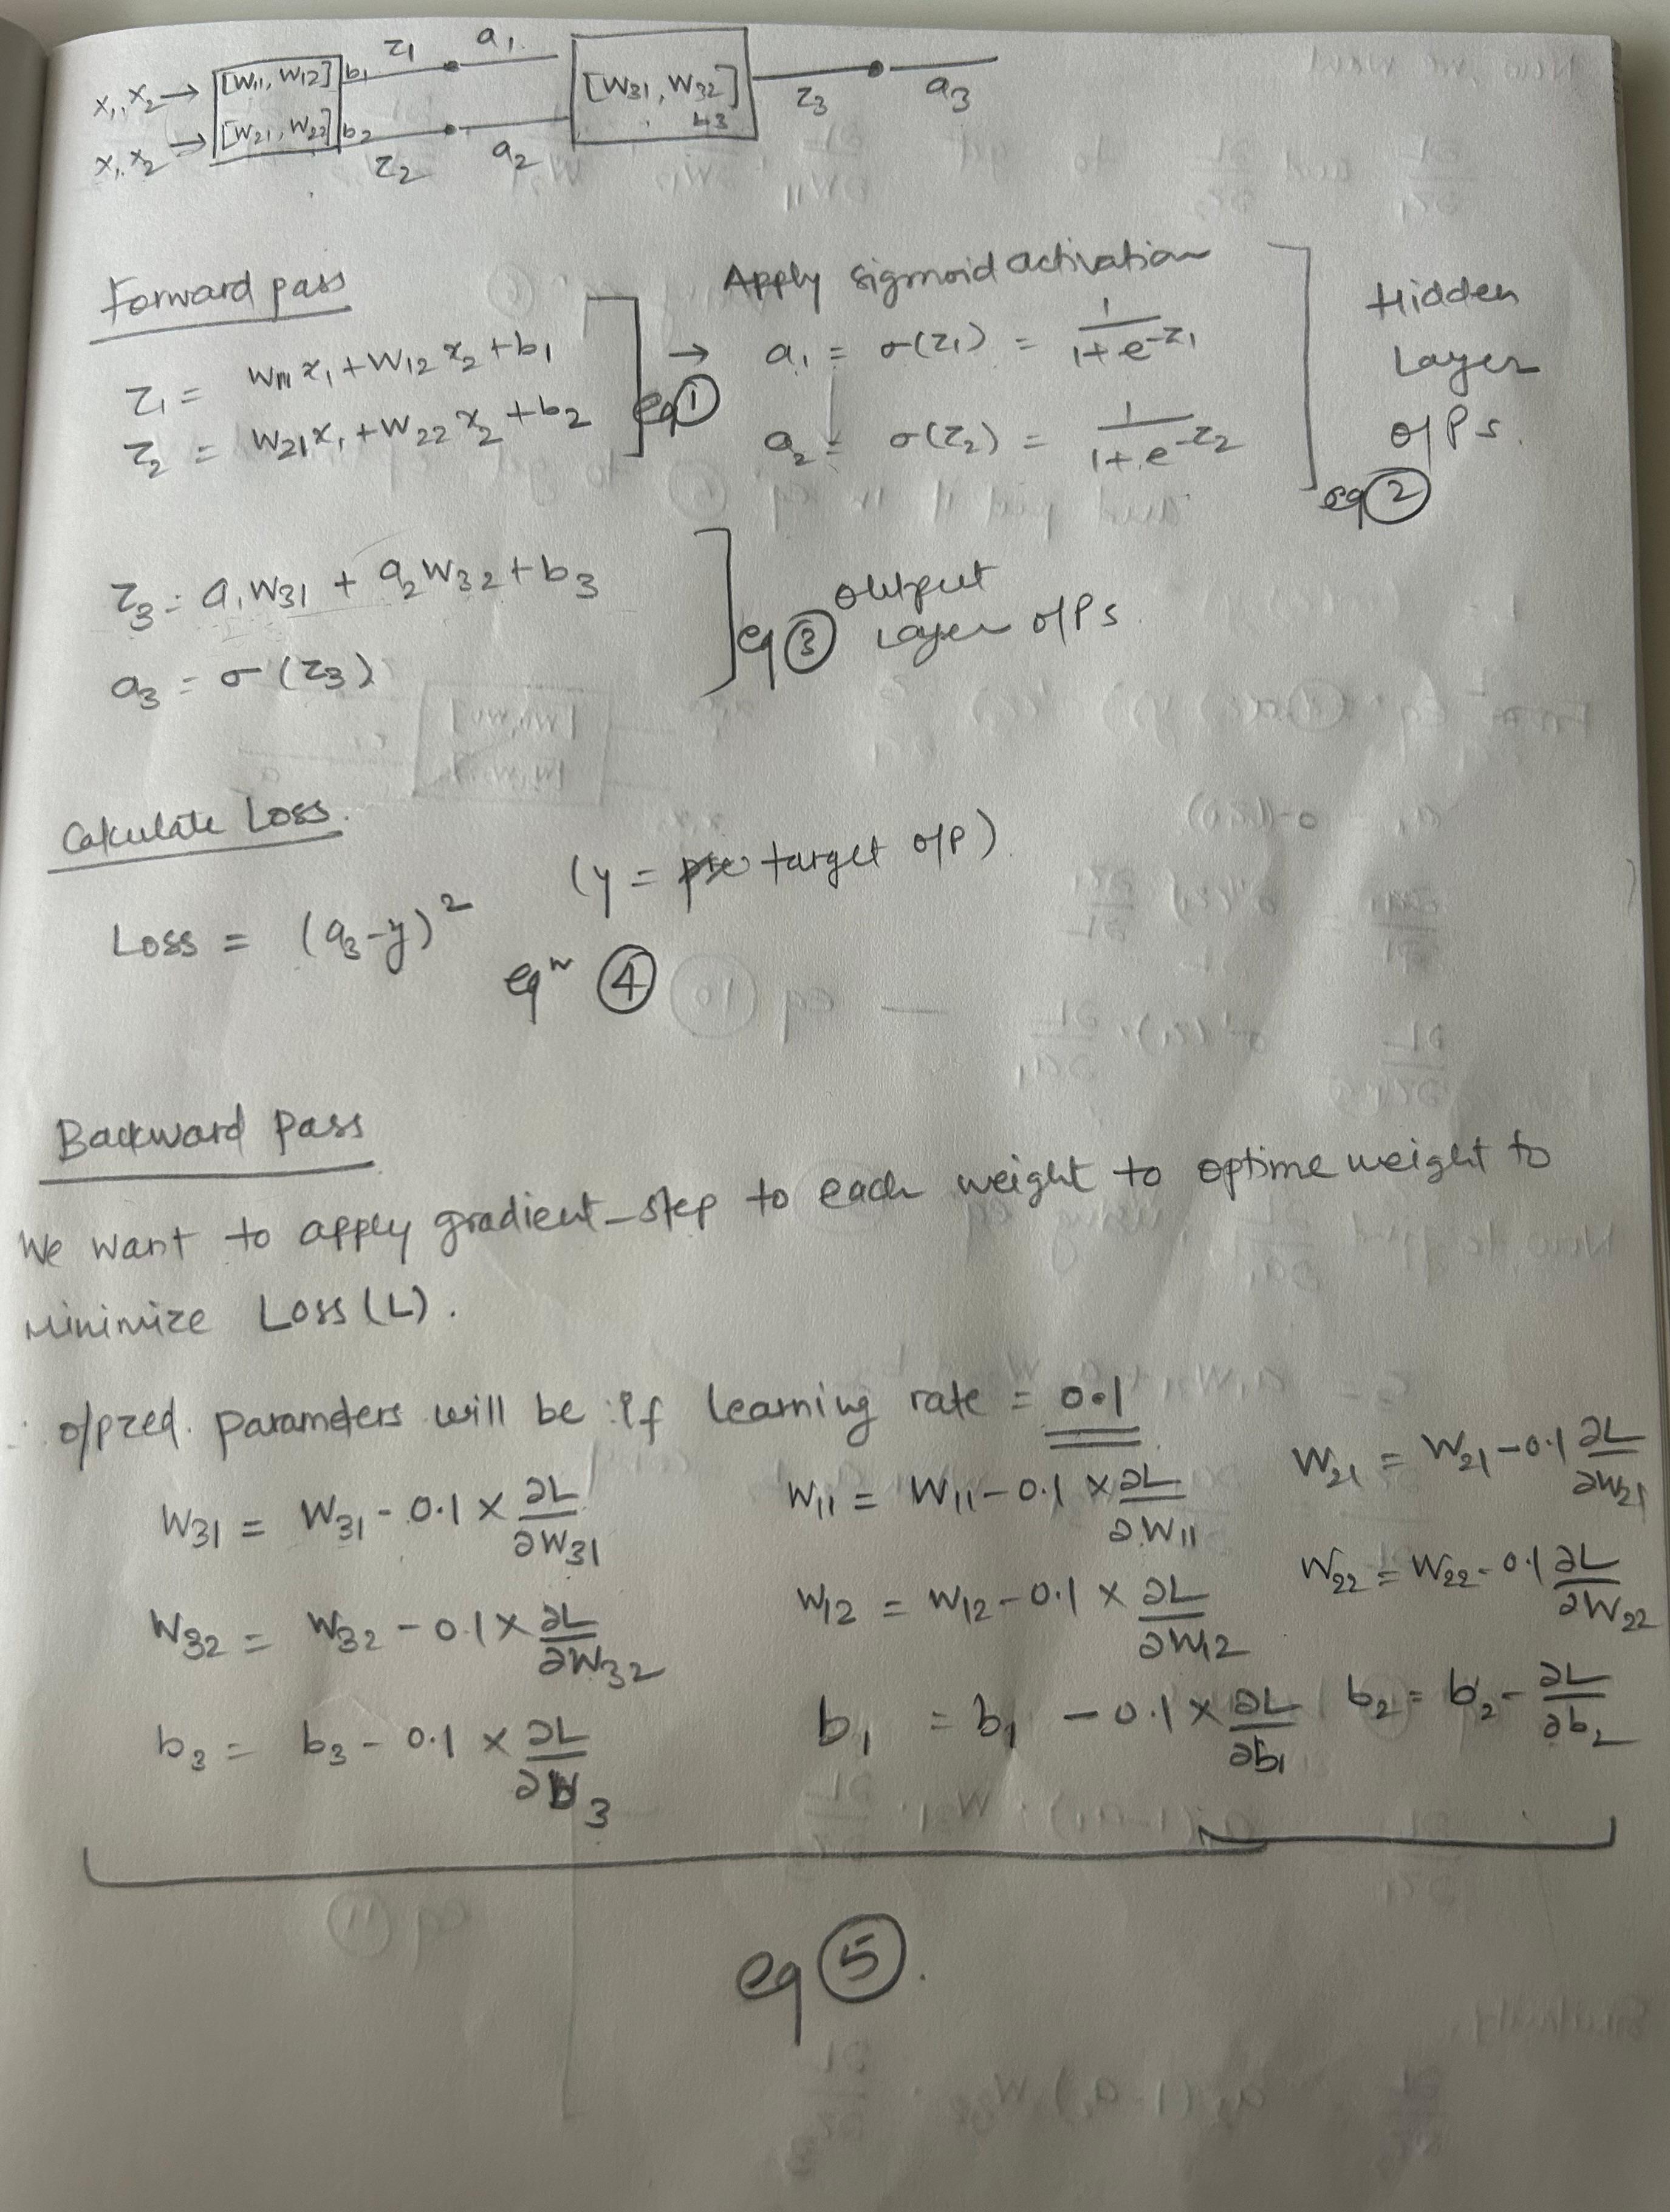 x₁, x₂ → [W₁₁, W₁₂] b₁ z₁ a₁ [W₃₁, W₃₂] z₃ a₃
x₁, x₂ → [W₂₁, W₂₂] b₂ z₂ a₂ b3
Forward pass
z₁ = W₁₁x₁ + W₁₂x₂ + b₁
z₂ = W₂₁x₁ + W₂₂x₂ + b₂
eq ①
→ Apply sigmoid activation
a₁ = σ(z₁) = 1/(1+e^-z₁)
a₂ = σ(z₂) = 1/(1+e^-z₂)
Hidden
Layer
o/Ps.
eq ②
z₃ = a₁W₃₁ + a₂W₃₂ + b₃
a₃ = σ(z₃)
eq ③ output
Layer o/Ps.
Calculate Loss.
Loss = (a₃-y)² (y = target o/p)
eqⁿ ④
Backward pass
We want to apply gradient-step to each weight to optime weight to
Minimize Loss (L).
∴ o/pzed. parameters will be if learning rate = 0.1
W₃₁ = W₃₁ - 0.1 × ∂L/∂W₃₁ W₁₁ = W₁₁ - 0.1 × ∂L/∂W₁₁ W₂₁ = W₂₁ - 0.1 ∂L/∂W₂₁
W₃₂ = W₃₂ - 0.1 × ∂L/∂W₃₂ W₁₂ = W₁₂ - 0.1 × ∂L/∂W₁₂ W₂₂ = W₂₂ - 0.1 ∂L/∂W₂₂
b₃ = b₃ - 0.1 × ∂L/∂b₃ b₁ = b₁ - 0.1 × ∂L/∂b₁ b₂ = b₂ - ∂L/∂b₂
eq ⑤.